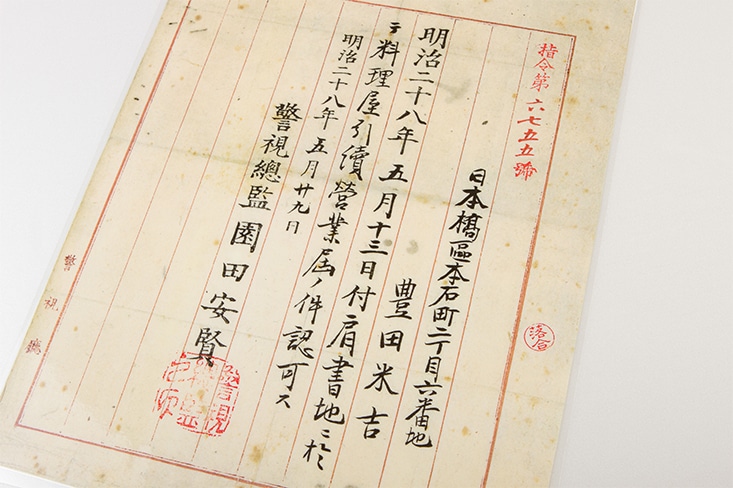 指令第六七五五號
日本橋區本石町二丁目六番地
豊田米吉
明治二十八年五月十三日付肩書地ニ於
テ料理屋引續營業届ノ件認可ス
明治二十八年五月廿九日
警視總監園田安賢
警視總監之印
警視廳